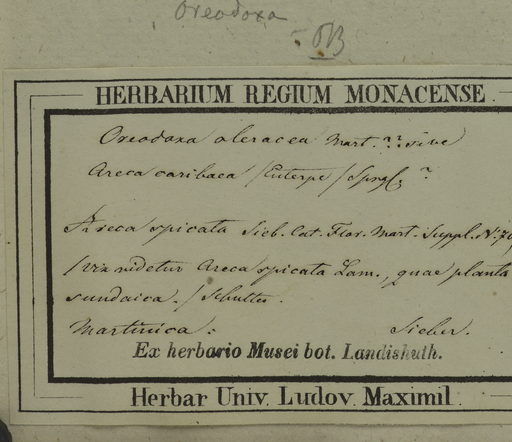 Oreodoxa
OB
HERBARIUM REGIUM MONACENSE
Oreodoxa oleracea Mart. ?? sive
Areca caribaea /Euterpe/ Sprgl. ?
Areca spicata Sieb. Cat. Flor. Mart. Suppl. N. 70
/vix videtur Areca spicata Lam., quae planta
sundaica./ Schultes.
Martinica: Sieber.
Ex herbario Musei bot. Landishuth.
Herbar Univ. Ludov. Maximil